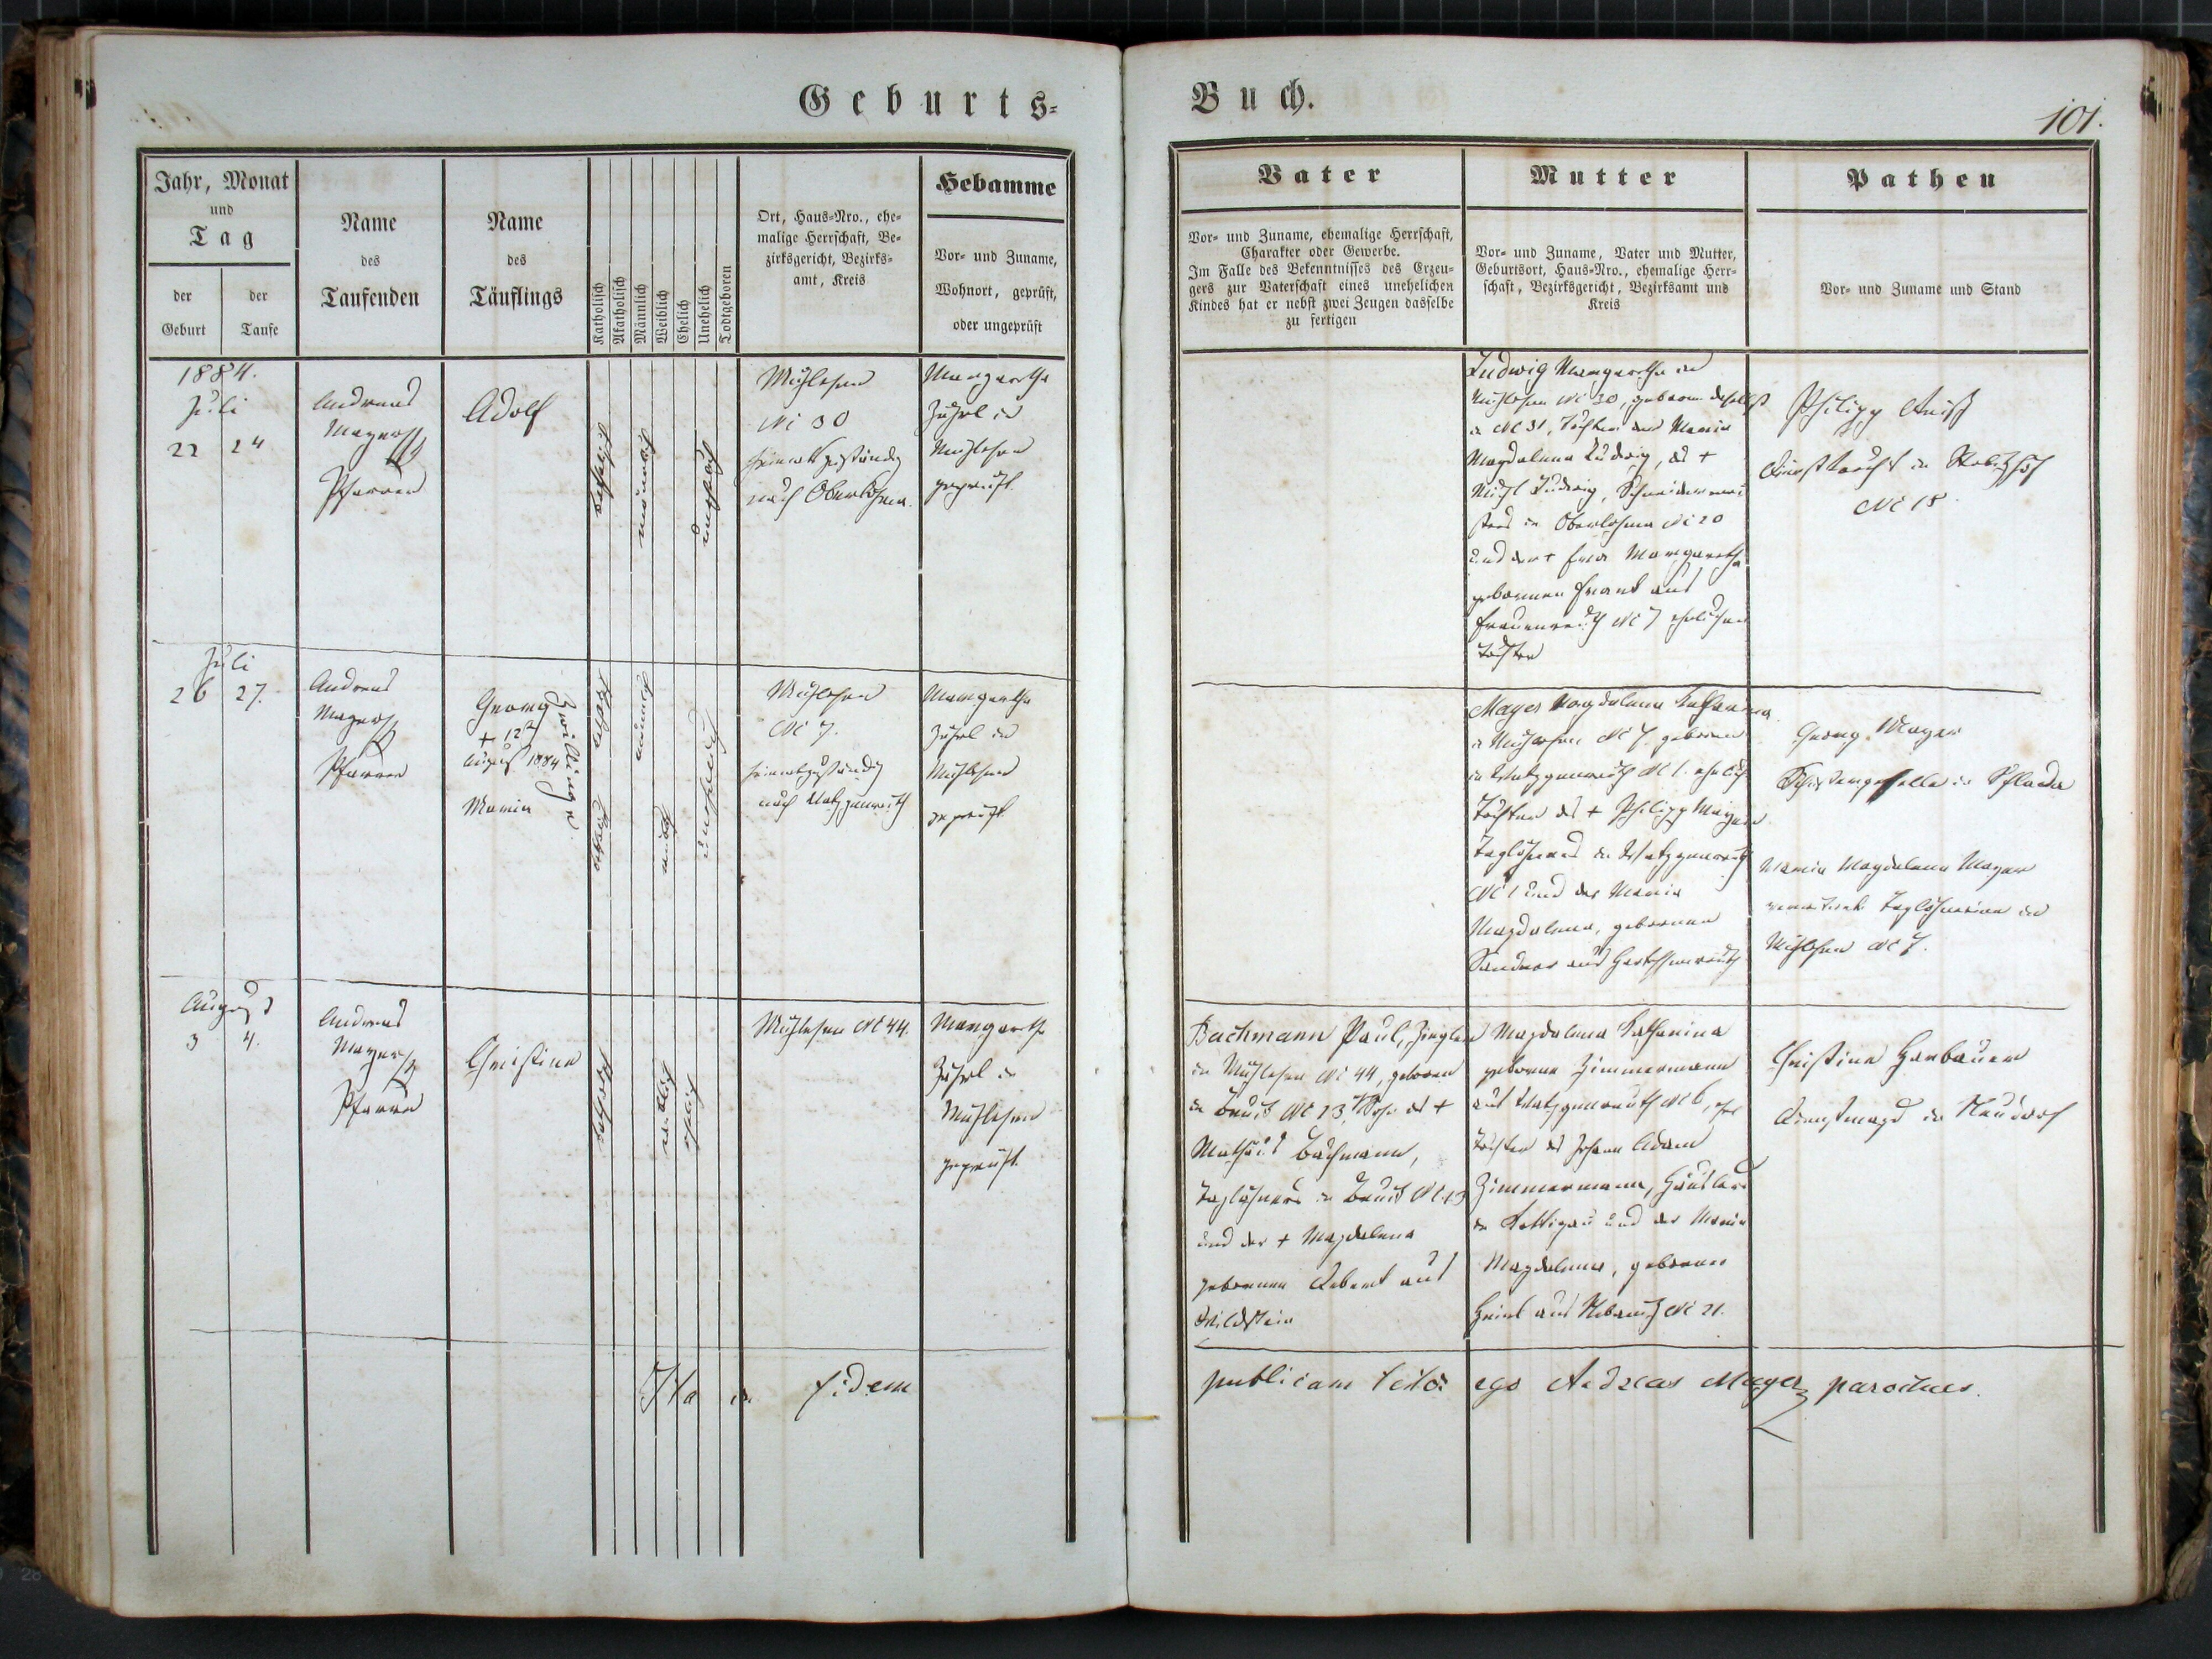 Geburts-
Buch.
101.
Jahr, Monat
und
Tag
der
Geburt
der
Taufe
Name
des
Taufenden
Name
des
Täuflings
Katholisch
Akatholisch
Männlich
Weiblich
Ehelich
Unehelich
Todtgeboren
Ort, Haus-Nro., ehe-
malige Herrschaft, Be-
zirksgericht, Bezirks-
amt, Kreis
Hebamme
Vor- und Zuname,
Wohnort, geprüft,
oder ungeprüft
Vater
Vor- und Zuname, ehemalige Herrschaft,
Charakter oder Gewerbe.
Im Falle des Bekenntnisses des Erzeu-
gers zur Vaterschaft eines unehelichen
Kindes hat er nebst zwei Zeugen dasselbe
zu fertigen
Mutter
Vor- und Zuname, Vater und Mutter,
Geburtsort, Haus-Nro., ehemalige Herr-
schaft, Bezirksgericht, Bezirksamt und
Kreis
Pathen
Vor- und Zuname und Stand
1884.
Juli
22 24
Andreas
Mayer
Pfarrer
Adolf
katholisch
männlich
unehelich
Mühlessen
Nr 30
heimatszuständig
nach Oberlohma.
Margaretha
in
Mühlessen
geprüft.
Ludwig Margaretha in
Mühlessen Nr 30, geboren daselbst
Nr 31, Tochter der Maria
Magdalena Ludwig, des +
Michl Ludwig, Schneidermei-
sters in Oberlohma Nr 20
und der + Frau Margaretha
gebornen Frank aus
Frauenreuth Nr 7 ehelichen
Tochter
Philipp
Dienstknecht in
Nr 18.
Juli
26 27.
Andreas
Mayer
Pfarrer
Georg
+ 12
August 1884
Maria
Zwillinge
katholisch
katholisch
männlich
weiblich
unehelich
Mühlessen
Nr 7.
heimatzuständig
nach Watzgenreuth
Margaretha
in
Mühlessen
geprüft.
Mayer Magdalena Katharina
in Mühlessen Nr 7. geboren
in Watzgenreuth Nr 1. ehelich
Tochter des + Philipp Mayer
Taglöhners in Watzgenreuth
Nr 1 und der Maria
Magdalena, gebornen
Sandner aus
Georg Mayer
in
Maria Magdalena Mayer
Taglöhnerin in
Mühlessen Nr 7.
August
3 4.
Andreas
Mayer
Pfarrer
Christina
katholisch
weiblich
ehelich
Mühlessen Nr 44.
Margaretha
in
Mühlessen
geprüft.
Bachmann Paul, Ziegler
in Mühlessen Nr 44, geboren
in Nr 13, Sohn des +
Bachmann,
Taglöhners in Nr 13
und der + Magdalena
gebornen aus
Wildstein
Magdalena Katharina
geborne Zimmermann
aus Watzgenreuth Nr 6, ehel
Tochter des Johann Adam
Zimmermann, Häusler
in und der Maria
Magdalena, gebornen
aus Nebanitz Nr 21.
Christina
Dienstmagd in Neudorf
Ita in fidem
publicam testor ego Andreas Mayer parochus.